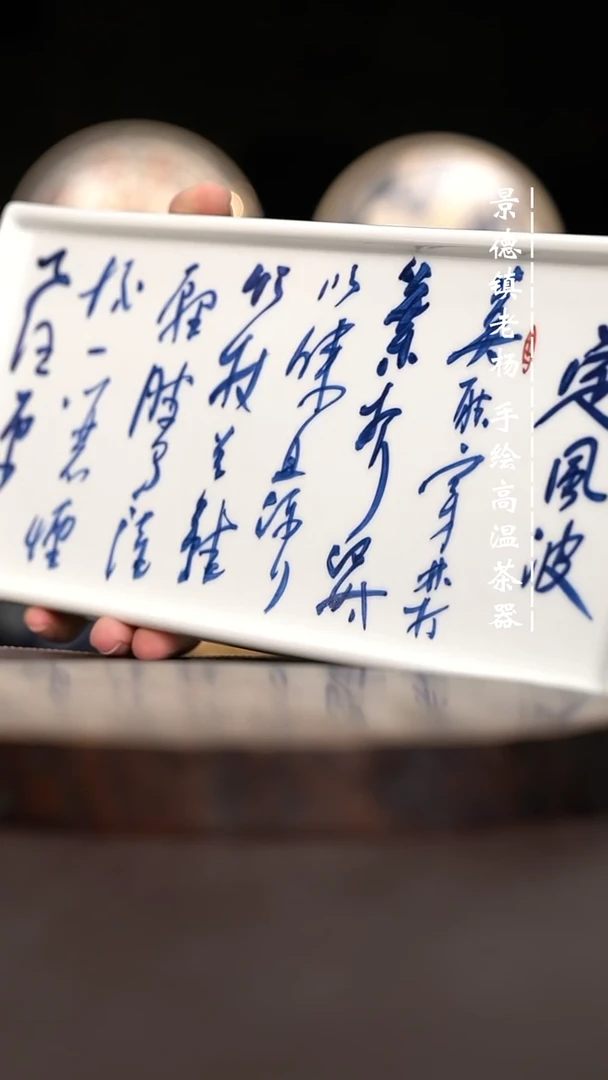 定風波
莫聽穿林打
葉
吟嘯且徐行
竹杖芒鞋
輕勝馬誰
怕一蓑煙
景德镇老杨 手绘高温茶器